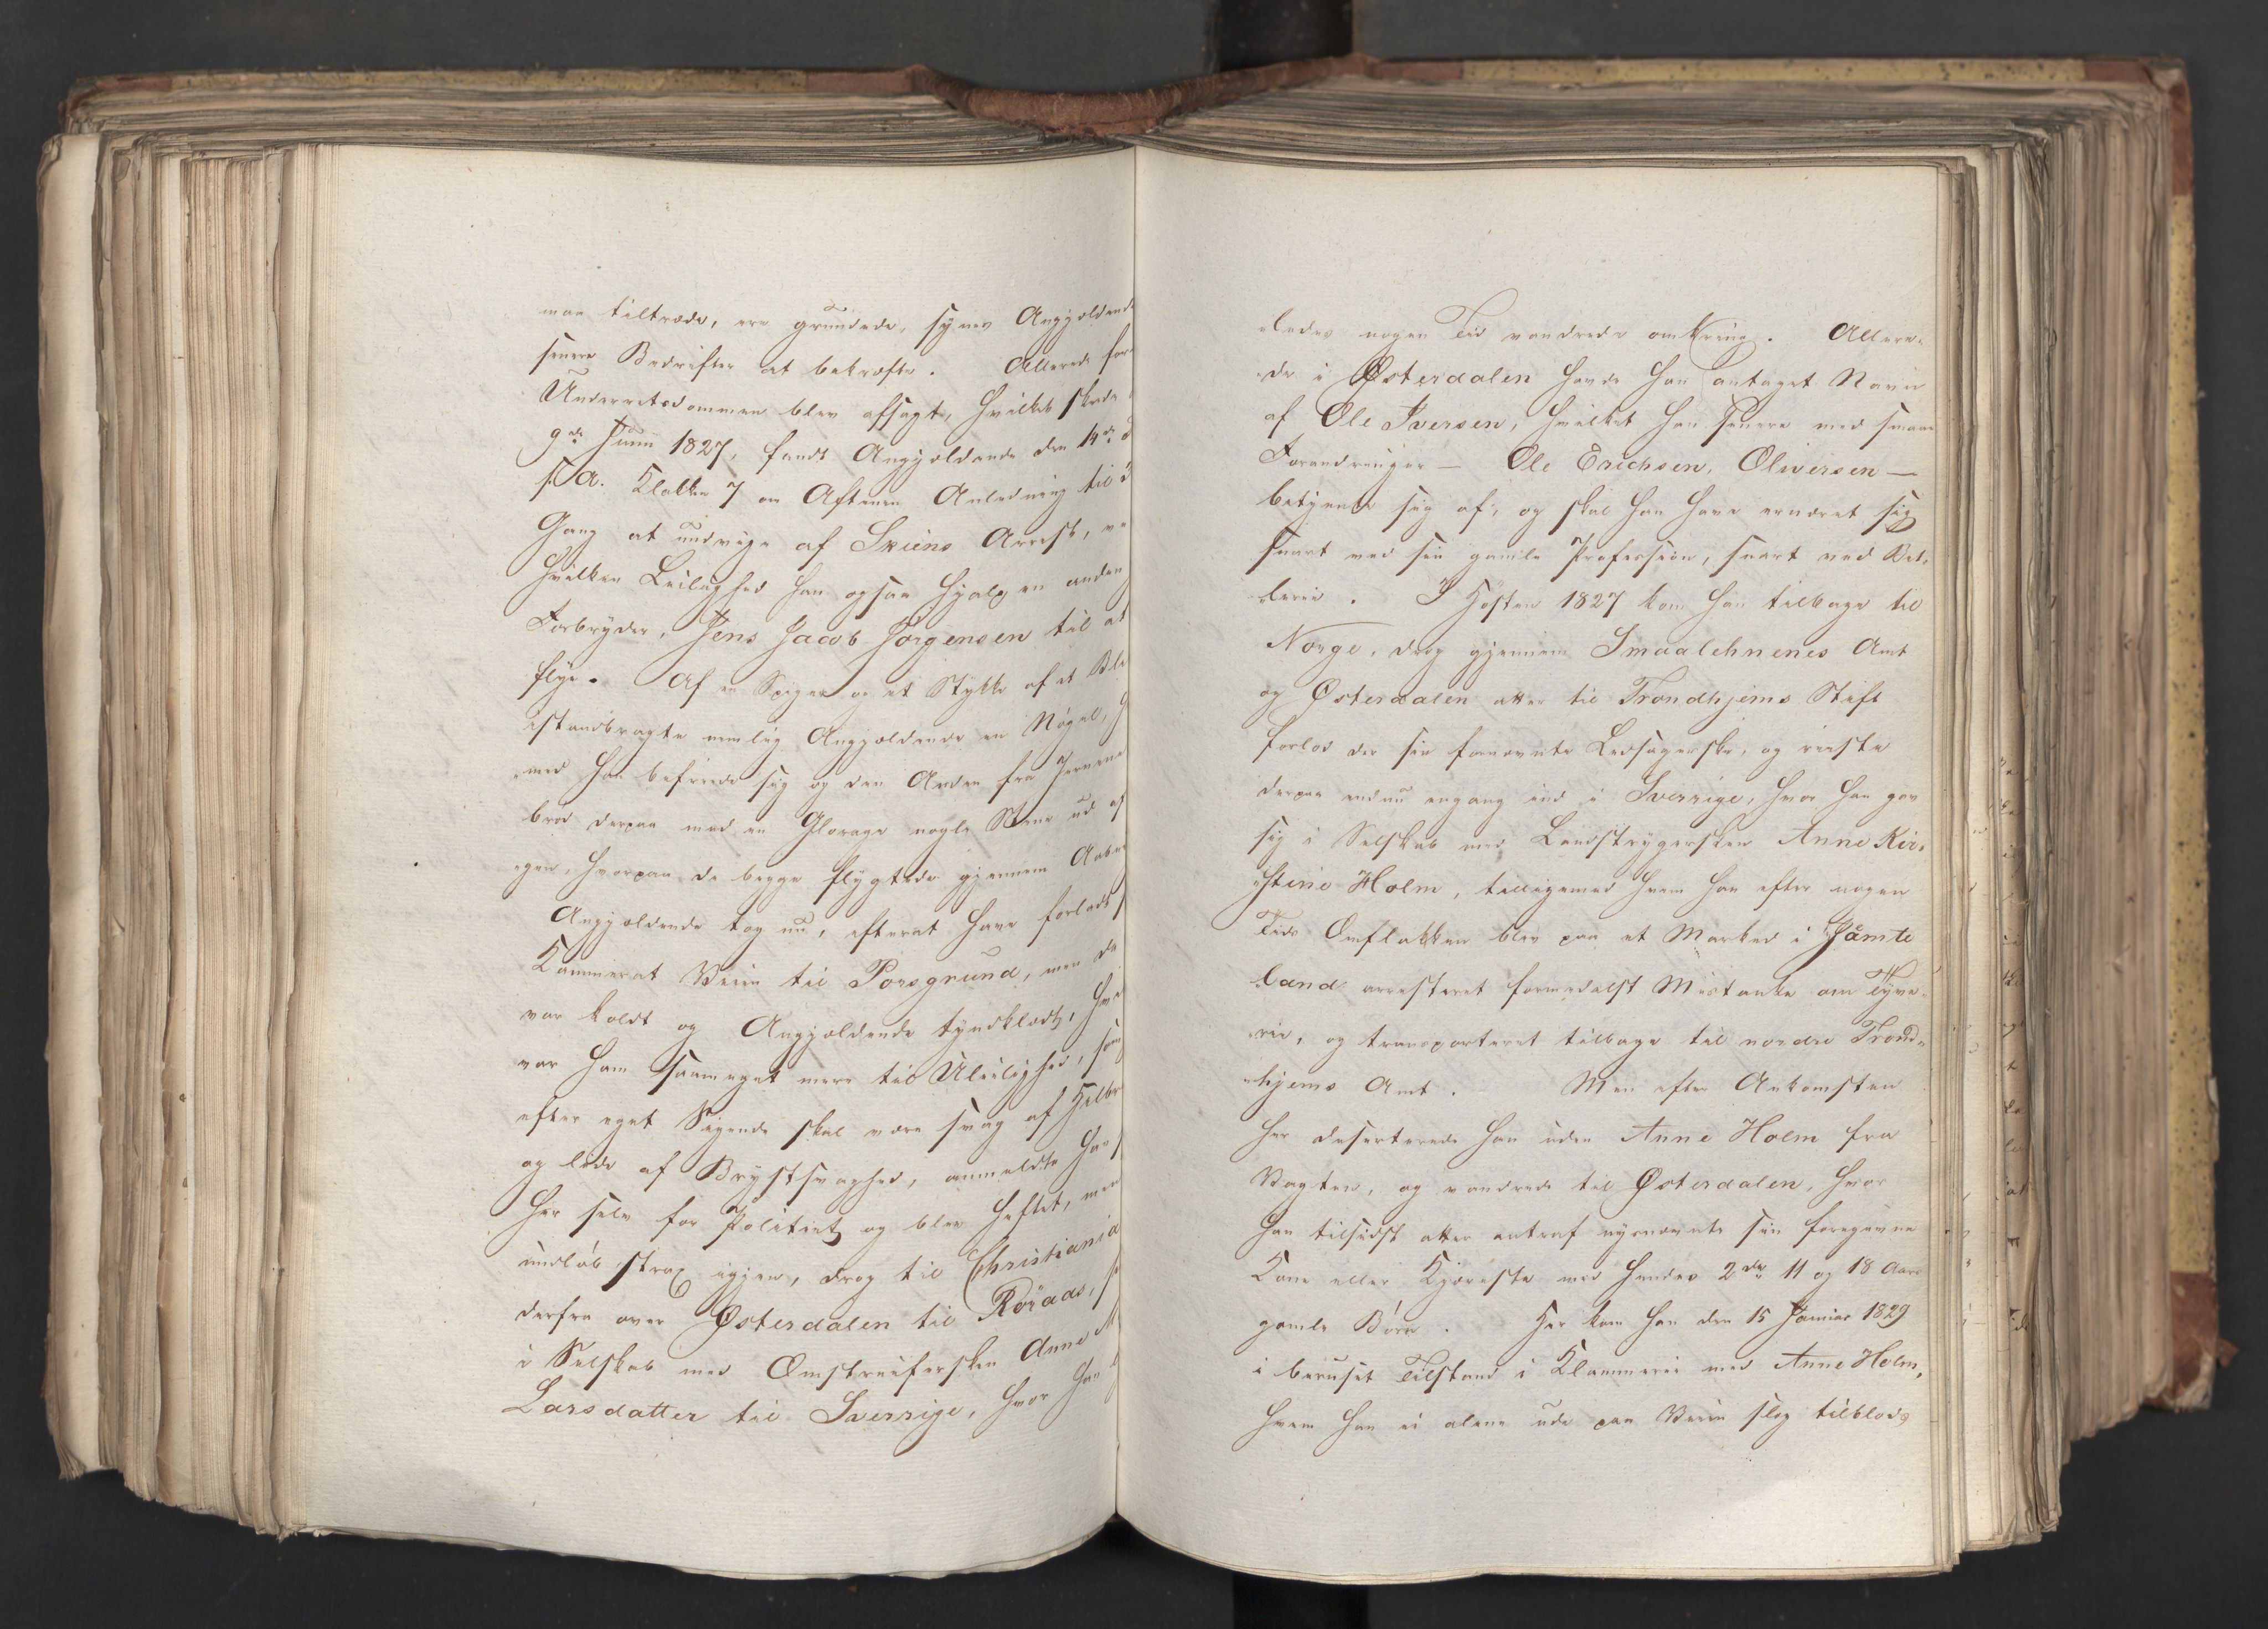 maa tiltræde, ere grundede, synes Angjældende
senere Bedrifter at bekræfte. Allerede før
Underretsdommen blev afsagt, hvilket skede
9de Junii 1827, fandt Angjældende den 14de
s. A. Klokken 7 om Aftenen Anledning til
Gang at undvige af Skiens Arrest, ve
hvilken Leilighed han ogsaa hjalp en anden
Forbryder, Jens Jacob Jørgensen til at
flye. Af en Spiger og et Stykke af et
istandbragte nemlig Angjældende en Nøgel,
med han befriede sig og den Anden fra Jernene
brød derpaa med en nogle Stene ud af
gen, hvorpaa de begge flygtede gjennem
Angjældende tog nu, efterat have forladt
Kammerat Veien til Porsgrund, men da
var koldt og Angjældende tyndklædt,
var ham saameget mere til Uleilighed, som
efter eget Sigende skal være svag af Helbr
og lede af Brystsvaghed, anmeldte han
her selv for Politiet og blev heftet, men
undløb strax igjen, drog til Christiania
derfra over Østerdalen til Röraas,
i Selskab med Omstreifersken Anne M
Larsdatter til Sverrige, hvor han
ledes nogen Tid vandrede omkring. Allere-
de i Østerdalen havde han antaget Navn
af Ole Iversen, hvilket han senere med smaae
Forandringer — Ole Erichsen, Oliversen —
betjente sig af, og skal han have ernæret sig
snart ved sin gamle Profession, snart ved Bet-
lerie. I Høsten 1827 kom han tilbage til
Norge, drog gjennem Smaalehnenes Amt
og Østerdalen atter til Trondhjems Stift
forlod der sin fornævnte Ledsagerske, og reiste
derpaa endnu engang ind i Sverrige, hvor han gav
sig i Selskab med Landstrygersken Anne Kir-
stine Holm, tilligemed hvem han efter nogen
Tids Omflakken blev paa et Marked i Jämte
land arresteret formedelst Mistanke om Tyve-
rie, og transporteret tilbage til nordre Trond-
hjems Amt. Men efter Ankomsten
her deserterede han uden Anne Holm fra
Vagten, og vandrede til Østerdalen, hvor
han tilsidst atter antraf nysnævnte sin foregivne
Kone eller Kjæreste med hendes 2de 11 og 18 Aars
gamle Börn. Her kom han den 15 Januar 1829
i beruset Tilstand i Klammerie med Anne Holm,
hvem han ei alene ude paa Veien slog tilblods